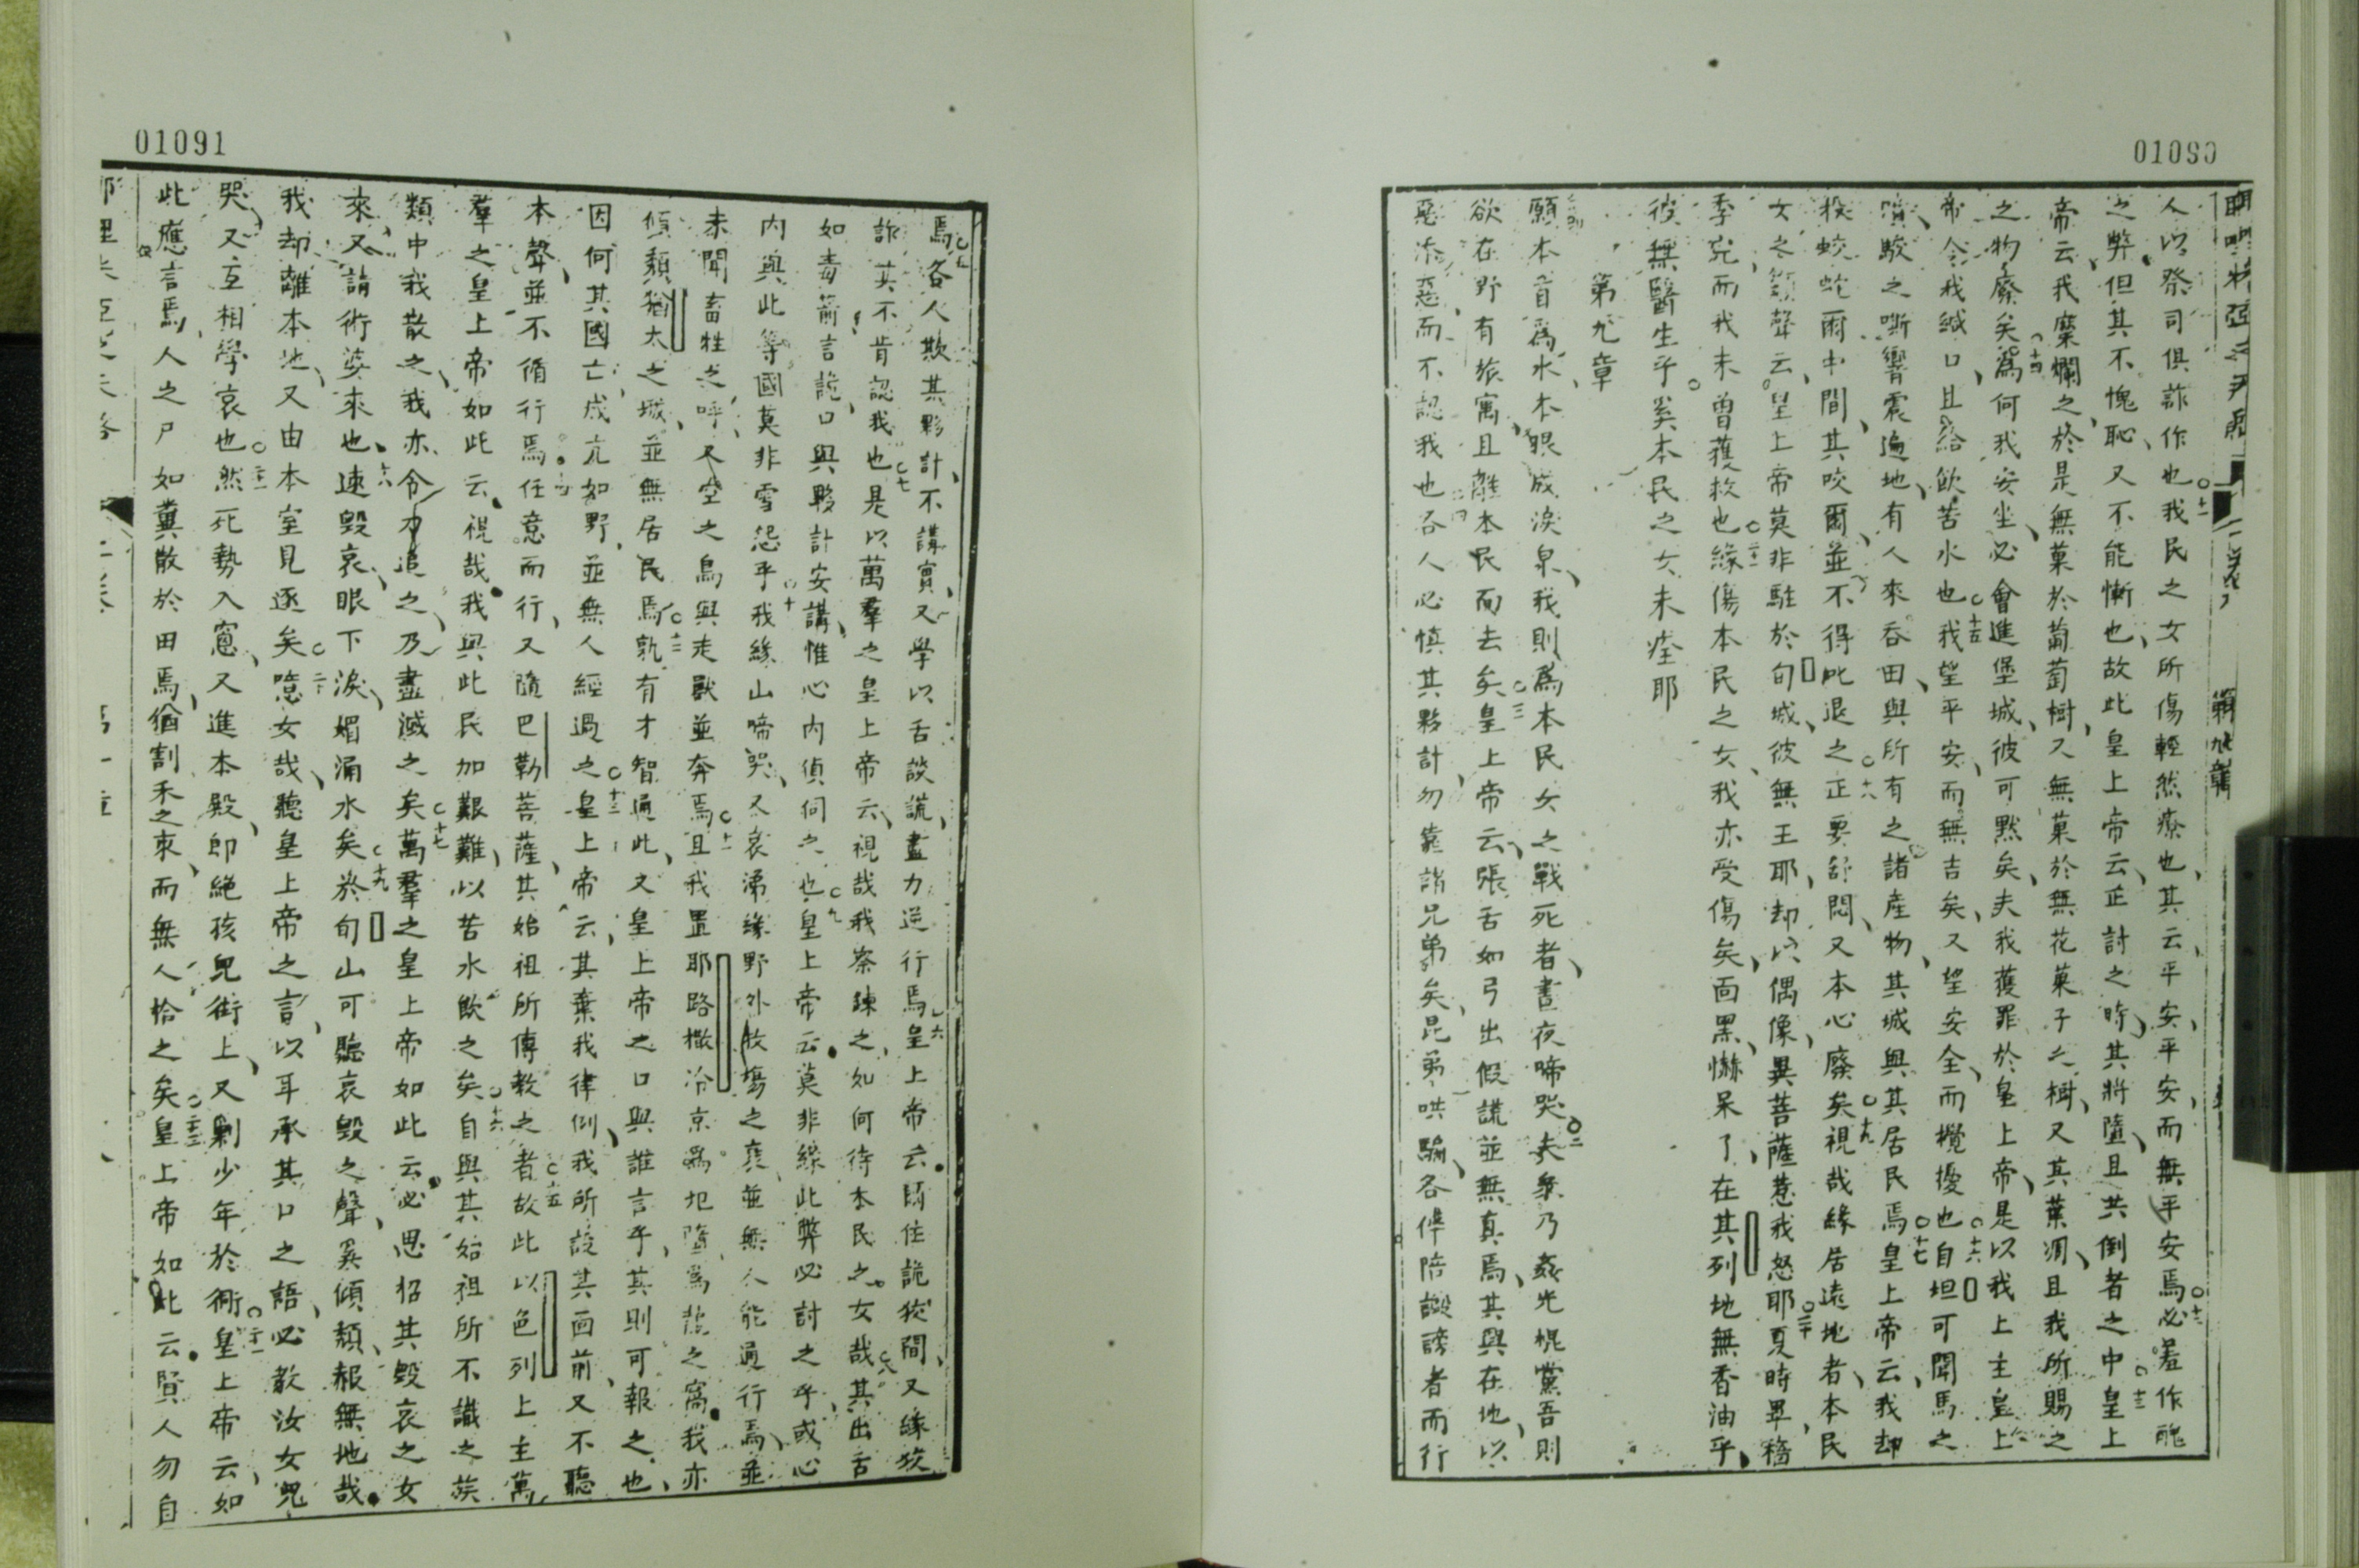 01090
人以祭司俱詐作也我民之女所傷輕然療也其云平安平安而無平安焉必羞作醜
之弊但其不愧恥又不能慚也故此皇上帝云正討之時其將墮且共倒者之中皇上
帝云我糜爛之於是無菓於葡萄樹又無菓於無花菓子之樹又其葉凋且我所賜之
之物廢矣為何我安坐必會進堡城彼可默矣夫我獲罪於皇上帝是以我上主皇上
帝令我緘口且給飲苦水也我望平安而無吉矣又望安全而攪擾也自坦可聞馬之
駿之嘶響震遍地有人來吞田與所有之諸產物其城與其居民焉皇上帝云我却
投蛟蛇爾中間其咬爾並不得叱退之正要舒悶又本心廢矣視哉緣居遠地者本民
女之聲云皇上帝莫非駐於旬城彼無王耶却以偶像異菩薩惹我怒耶夏時畢穡
季完而我未曾獲救也緣傷本民之女我亦受傷矣面黑懶呆了在其列地無香油乎
彼無醫生乎奚本民之女未痊耶
第九章
願本首為水本眼成淚泉我則為本民女之戰死者晝夜啼哭夫衆乃姦光棍黨吾則
欲在野有旅寓且離本民而去矣皇上帝云張舌如弓出假謊並無真焉其興在地以
惡添惡而不認我也各人必慎其夥計勿靠諸兄弟矣昆弟哄騙各伴陪譭謗者而行
01091
焉各人欺其夥計不講實又學以舌談謊盡力逆行焉皇上帝云爾住詭狡間又緣狡
詐其不肯認我也是以萬羣之皇上帝云視哉我察鍊之如何待本民之女哉其出舌
如毒箭言詭口與夥計安講惟心內偵伺之也皇上帝云莫非緣此弊必討之乎或心
內與此等國莫非雪怨乎我緣山啼哭又哀涕緣野外牧塲之喪並無人能過行焉並
未聞畜牲之呼又空之鳥與走獸並奔焉且我置耶路撒冷京為圯墮為龍之窩我亦
傾頽猶太之城並無居民焉孰有才智通此又皇上帝之口與誰言乎其則可報之也
因何其國亡成亢如野並無人經過之皇上帝云其棄我律例我所設其面前又不聽
本聲並不循行焉任意而行又隨巴勒菩薩其始祖所傳教之者故此以色列上主萬
羣之皇上帝如此云視哉我與此民加艱難以苦水飲之矣自與其始祖所不識之族
類中我散之我亦令刀追之乃盡滅之矣萬羣之皇上帝如此云必思招其毀哀之女
來又請術婆來也速毀哀眼下淚媚涌水矣於旬山可聽哀毀之聲奚傾頽赧無地哉
我却離本地又由本室見逐矣噫女哉聽皇上帝之言以耳承其口之語必教汝女兒
哭又互相學哀也然死勢入窻又進本殿即絕孩兒街上又剿少年於衕皇上帝云如
此應言焉人之尸如糞散於田焉猶割禾之束而無人拾之矣皇上帝如此云賢人勿自